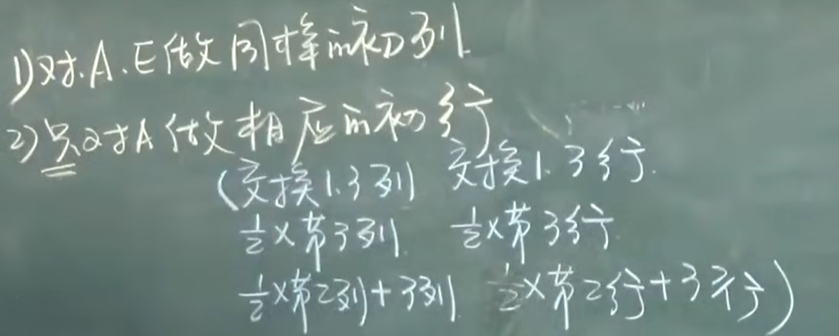 1)对.A.E做同样的初列
2)只对A做相应的初行
(交换1.3列 交换1.3行.
1/2×第3列 1/2×第3行
1/2×第2列+3列 1/2×第2行+3行)